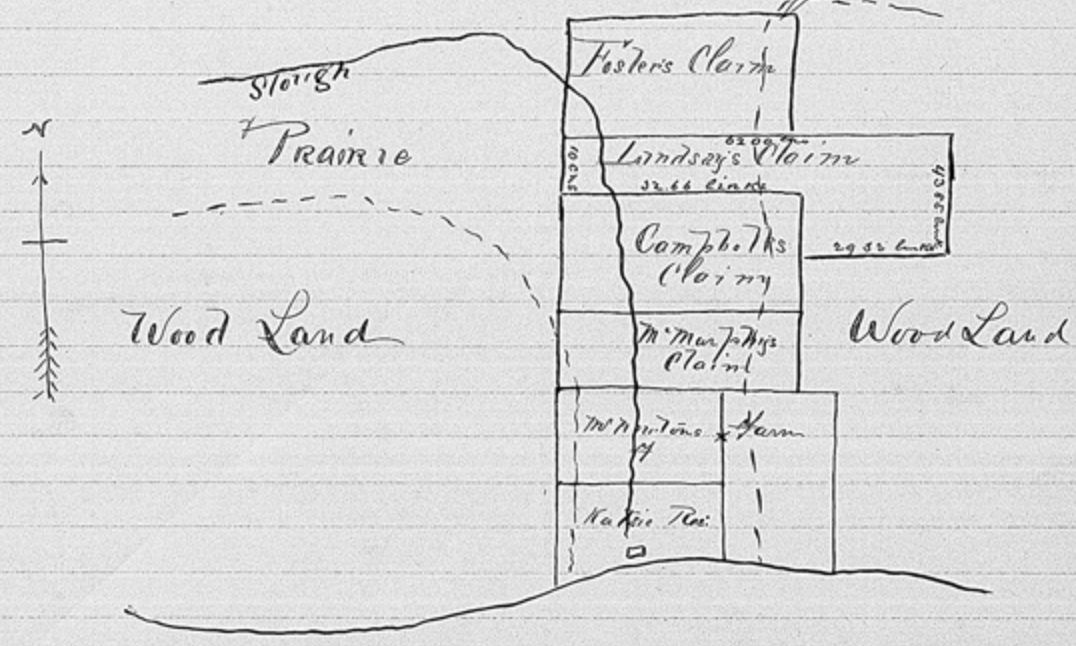 N
Slough
Prairie
Wood Land
Foster's Claim
Lindsay's Claim
32.66 links
29 32 links
Campbell's
Claim
McMurphy's
Claim
Wood Land
Mr Newton's
Farm
Katzie Res.